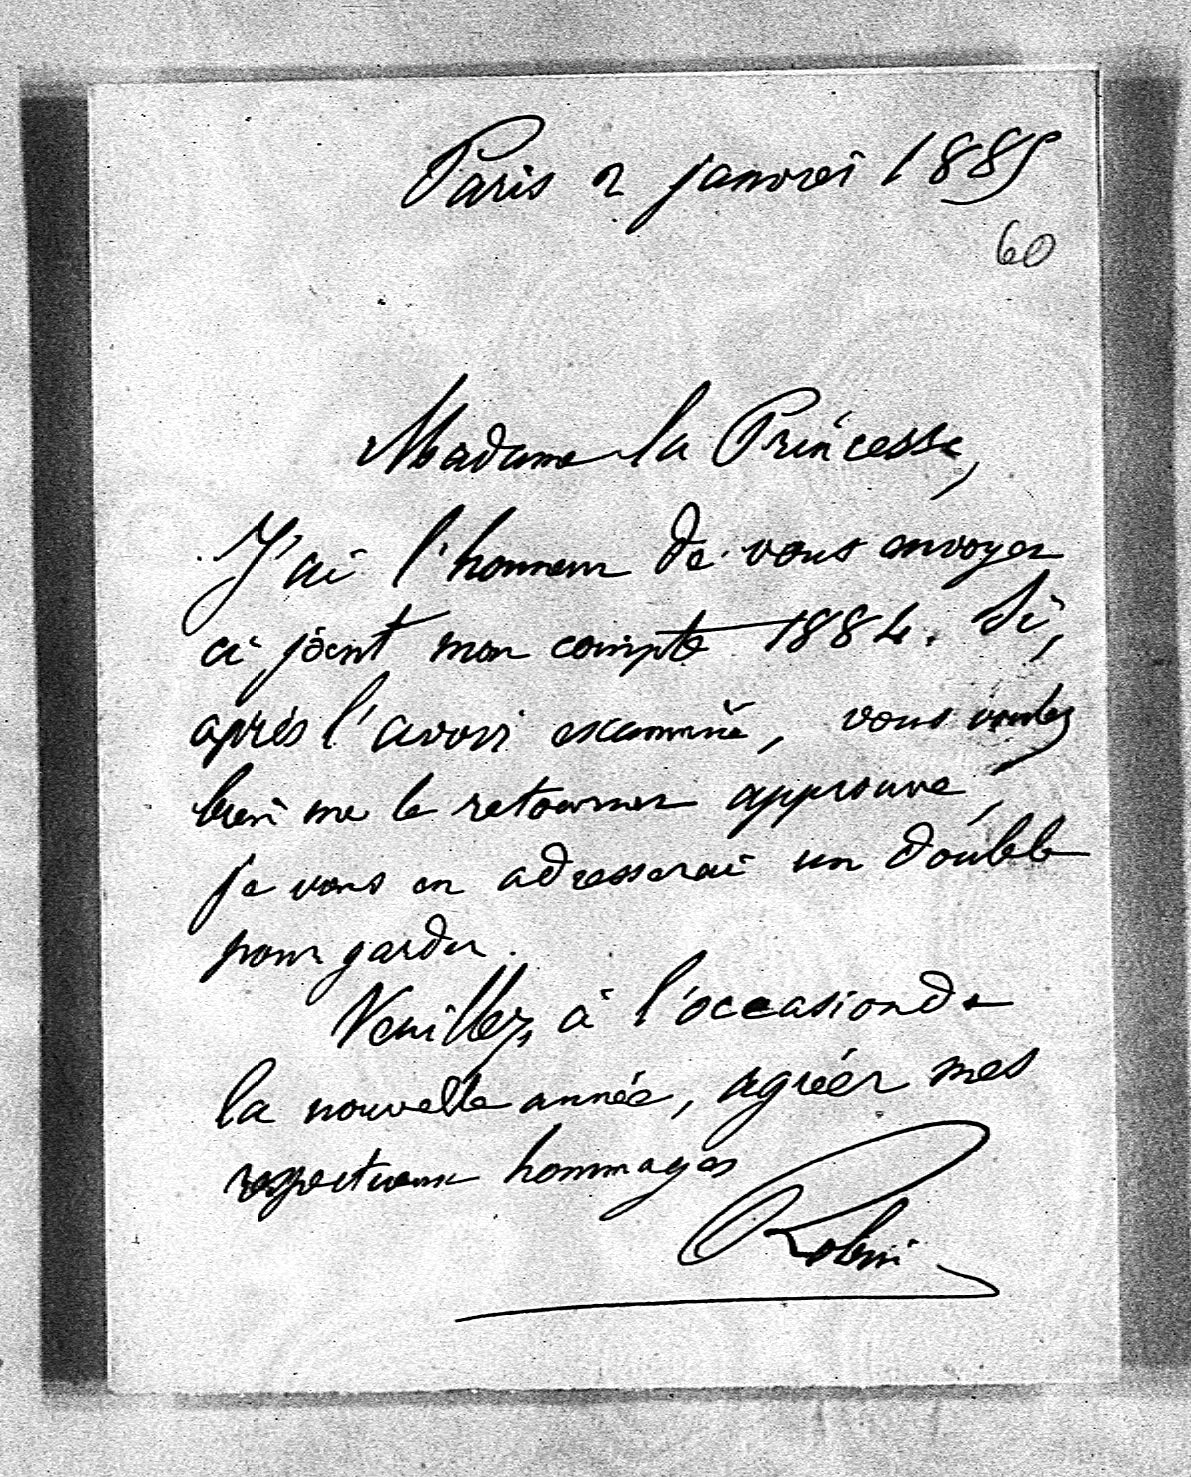 Paris 2 janvier 1885
60
Madame la Princesse,
J'ai l'honneur de vous envoyer
ci joint mon compte 1884. Si,
après l'avoir examiné, vous voulez
bien me le retourner approuvé,
je vous en adresserai un double
pour garder.
Veuillez, à l'occasion de
la nouvelle année, agréer mes
respectueux hommages
Robin